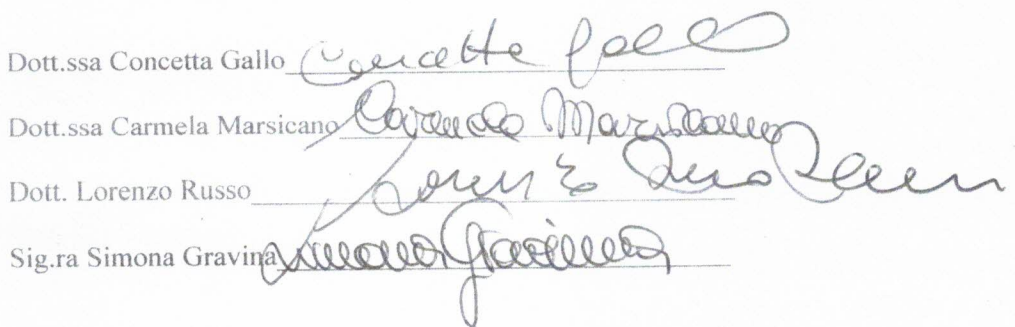 Dott.ssa Concetta Gallo Concetta Gallo
Dott.ssa Carmela Marsicano Carmela Marsicano
Dott. Lorenzo Russo Lorenzo
Sig.ra Simona Gravina Simona Gravina